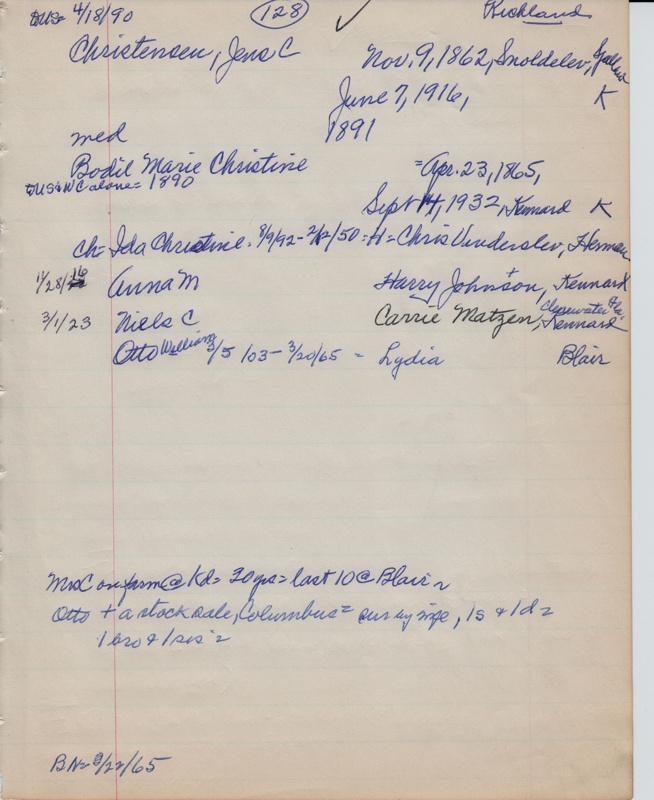 DUS= 4/18/90 128 Richland
Christensen, Jens C Nov. 9, 1862, Snoldelev,
June 7, 1916, K
med 1891
Bodil Marie Christine =Apr. 23, 1865,
DUS W C alone= 1890
Sept 14, 1932, Kennard K
ch= Ida Christine. 8/9/92- 2/12/50 =H= Chris Vinderslev, Herman
11/28/16 Anna M Harry Johnson, + Kennard
Clearwater Fla.
3/1/23 Niels C Carrie Matzen, Kennard
Otto William 3/5/03- 3/20/65 - Lydia Blair
Mrs C on farm @ Kd= 20 yrs= last 10 @ Blair
Otto + a stock sale, Columbus= sur by wife, 1s + 1d=
1 bro + 1 sis=
BN= /22/65